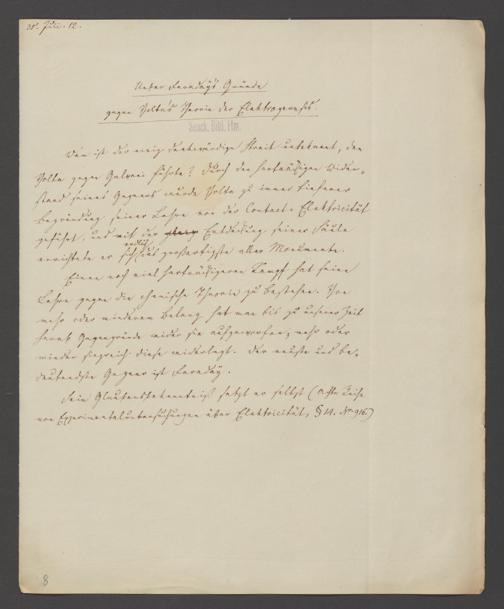 Ueber Faraday's Gründe
gegen Volta's Theorie der Elektrogenesis.
Senck. Bibl. Ffm.
Wem ist der ewig denkwürdige Streit unbekannt, den
Volta gegen Galvani führte? Durch den hartnäckigen Wider-
stand seines Gegners wurde Volta zu immer tieferer
Begründung seiner Lehre von der Contact-Elektricität
geführt, und mit der Entdeckung seiner Säule
endlich
errichtete er sich das großartigste aller Monumente.
Einen noch viel hartnäckigeren Kampf hat seine
Lehre gegen die chemische Theorie zu bestehen. Von
mehr oder minderem Belang hat man bis zu unserer Zeit
herab Gegengründe wider sie aufgeworfen, mehr oder
minder siegreich diese widerlegt. Der neuste und be-
deutendste Gegner ist Faraday.
Sein Glaubensbekenntniß setzt er selbst (Reihe
von Experimentaluntersuchungen über Elektricität, § 14. No 916)
8